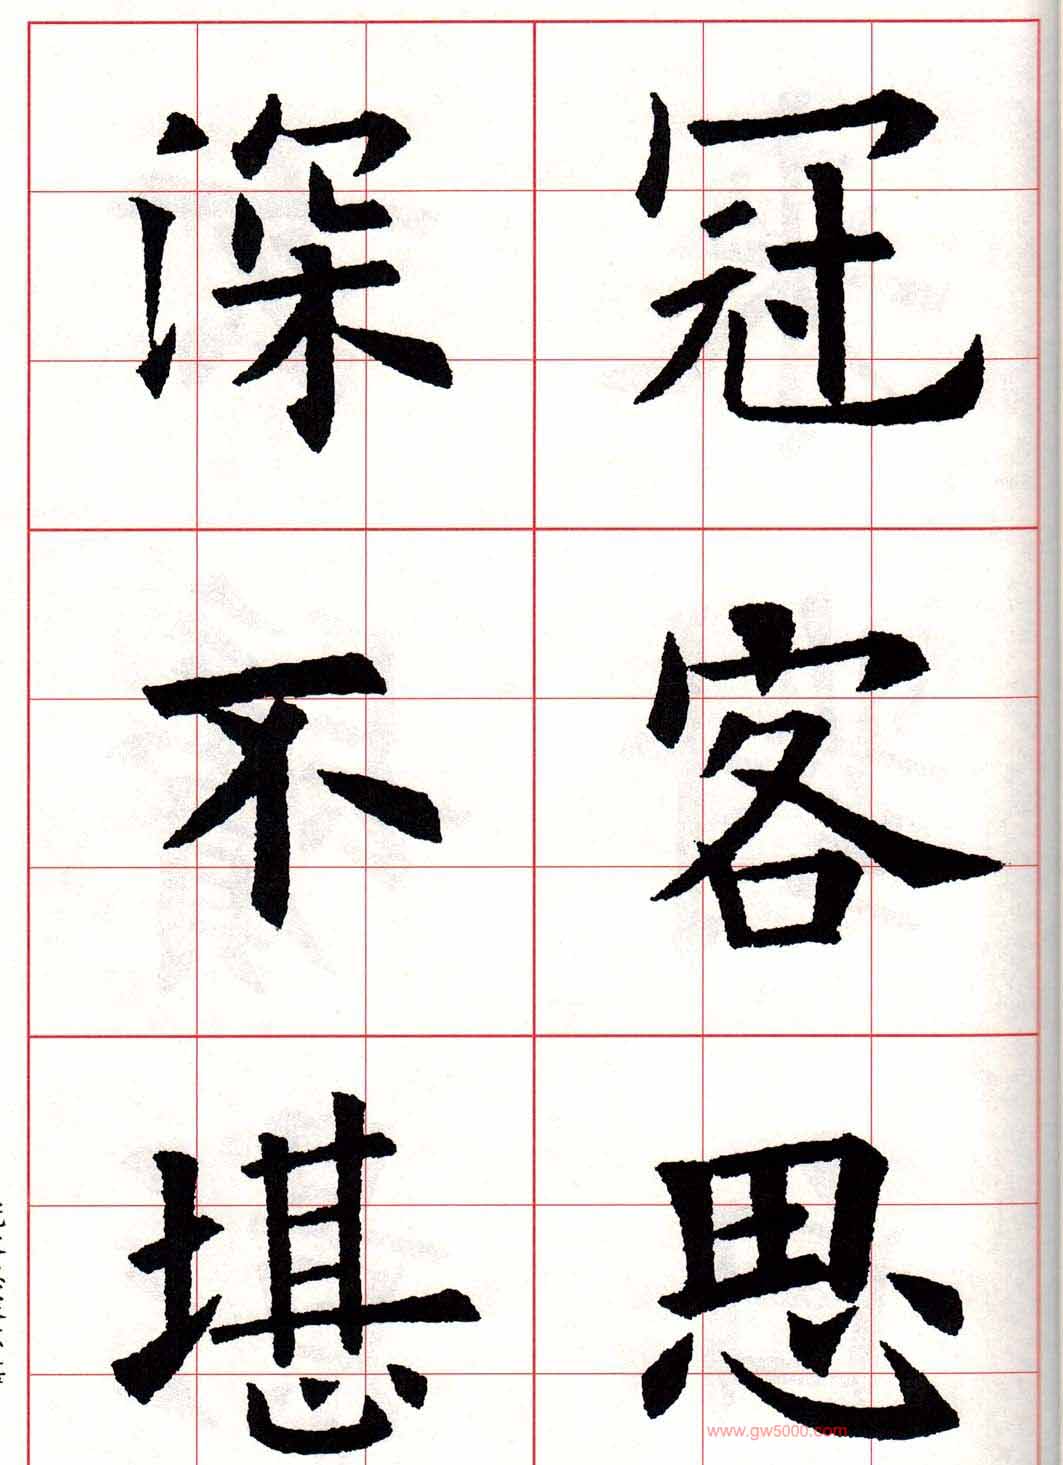 冠客思
深不堪
www.gw5000.com